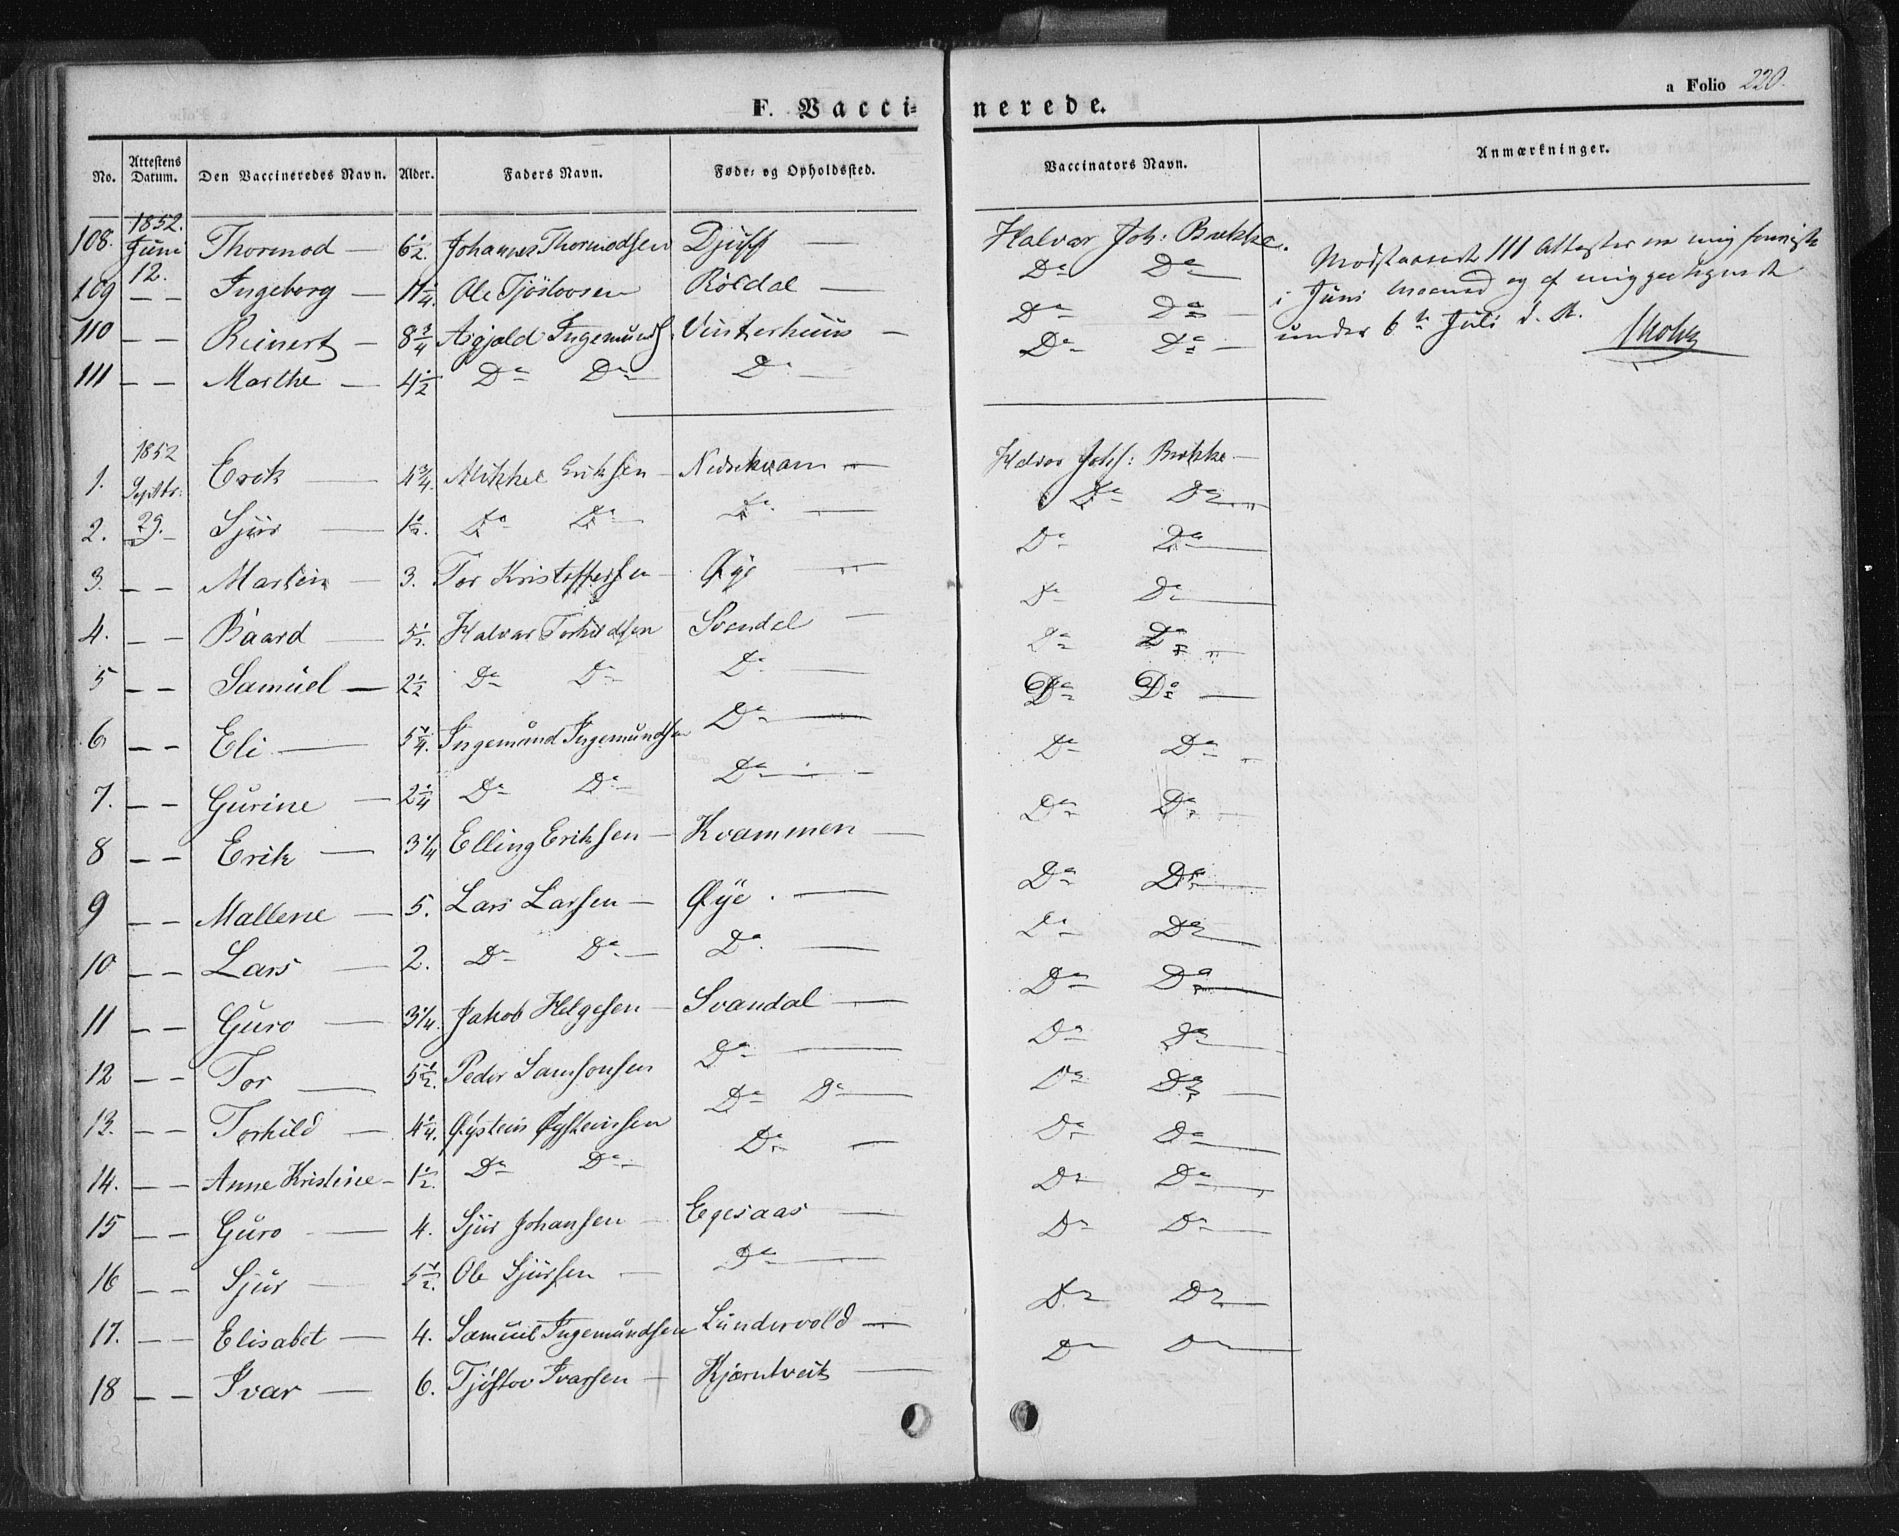 a Folio 220.
F. Vaccinerede.
No. Attestens Datum. Den Vaccineredes Navn. Alder. Faders Navn. Føde- og Opholdssted. Vaccinators Navn. Anmærkninger.
108. 1852. Juni 12. Thormod — 6½. Johannes Thormodsen Djuff — Halvar Joh: Brekke.
109 — — Ingeborg — Ole Tjöstovsen Röldal — Do Do —
110 — — Reinert — 8¾ Ingemunds. Vinterhuus — Do Do —
111 — — Marthe — 4½ Do Do — Do — Do Do —
111 Attester
i Juni Maaned og af mig
under 6te Juli d. A.
1. 1852 Septbr. 29. Erik — 4¾. Mikkel Eriksen — Nedrekvam — Halvor Johs: Brekke —
2. — Sjur — 1½. Do Do — Do — Do Do —
3. — — Martin — 3. Tor Kristoffersen — Øye — Do Do —
4. — — Baard — 5½. Halvar Torkildsen Svandal — Do Do —
5 — — Samuel — 2½ Do Do Do — Do Do —
6 — — Eli — 5¼. Ingemund Ingemundsen Do — Do Do —
7. — — Gurine — 2¼ Do Do — Do — Do Do —
8 — — Erik — 3¼ Elling Eriksen — Kvammen — Do Do —
9 — — Mallene — 5. Lars Larsen — Øye — Do Do —
10 — — Lars — 2. Do Do — Do — Do Do —
11 — — Guro — 3¼. Jakob Helgesen — Svandal — Do Do —
12 — — Tor — 5½. Peder Samsonsen Do — Do Do —
13. — — Torkild — 4¼. Øystein Øysteinsen Do Do — Do Do —
14. — — Anne Kristine — 1½. Do Do — Do — Do Do —
15 — — Guro — 4. Sjur Johansen — Egesaas — Do Do —
16 — — Sjur — 5½. Ole Sjursen — Do — Do Do —
17. — — Elisabet — 4. Samuel Ingemundsen Lundervold — Do Do —
18 — — Ivar — 6. Tjøstov Ivarsen — Kjørntveit — Do Do —